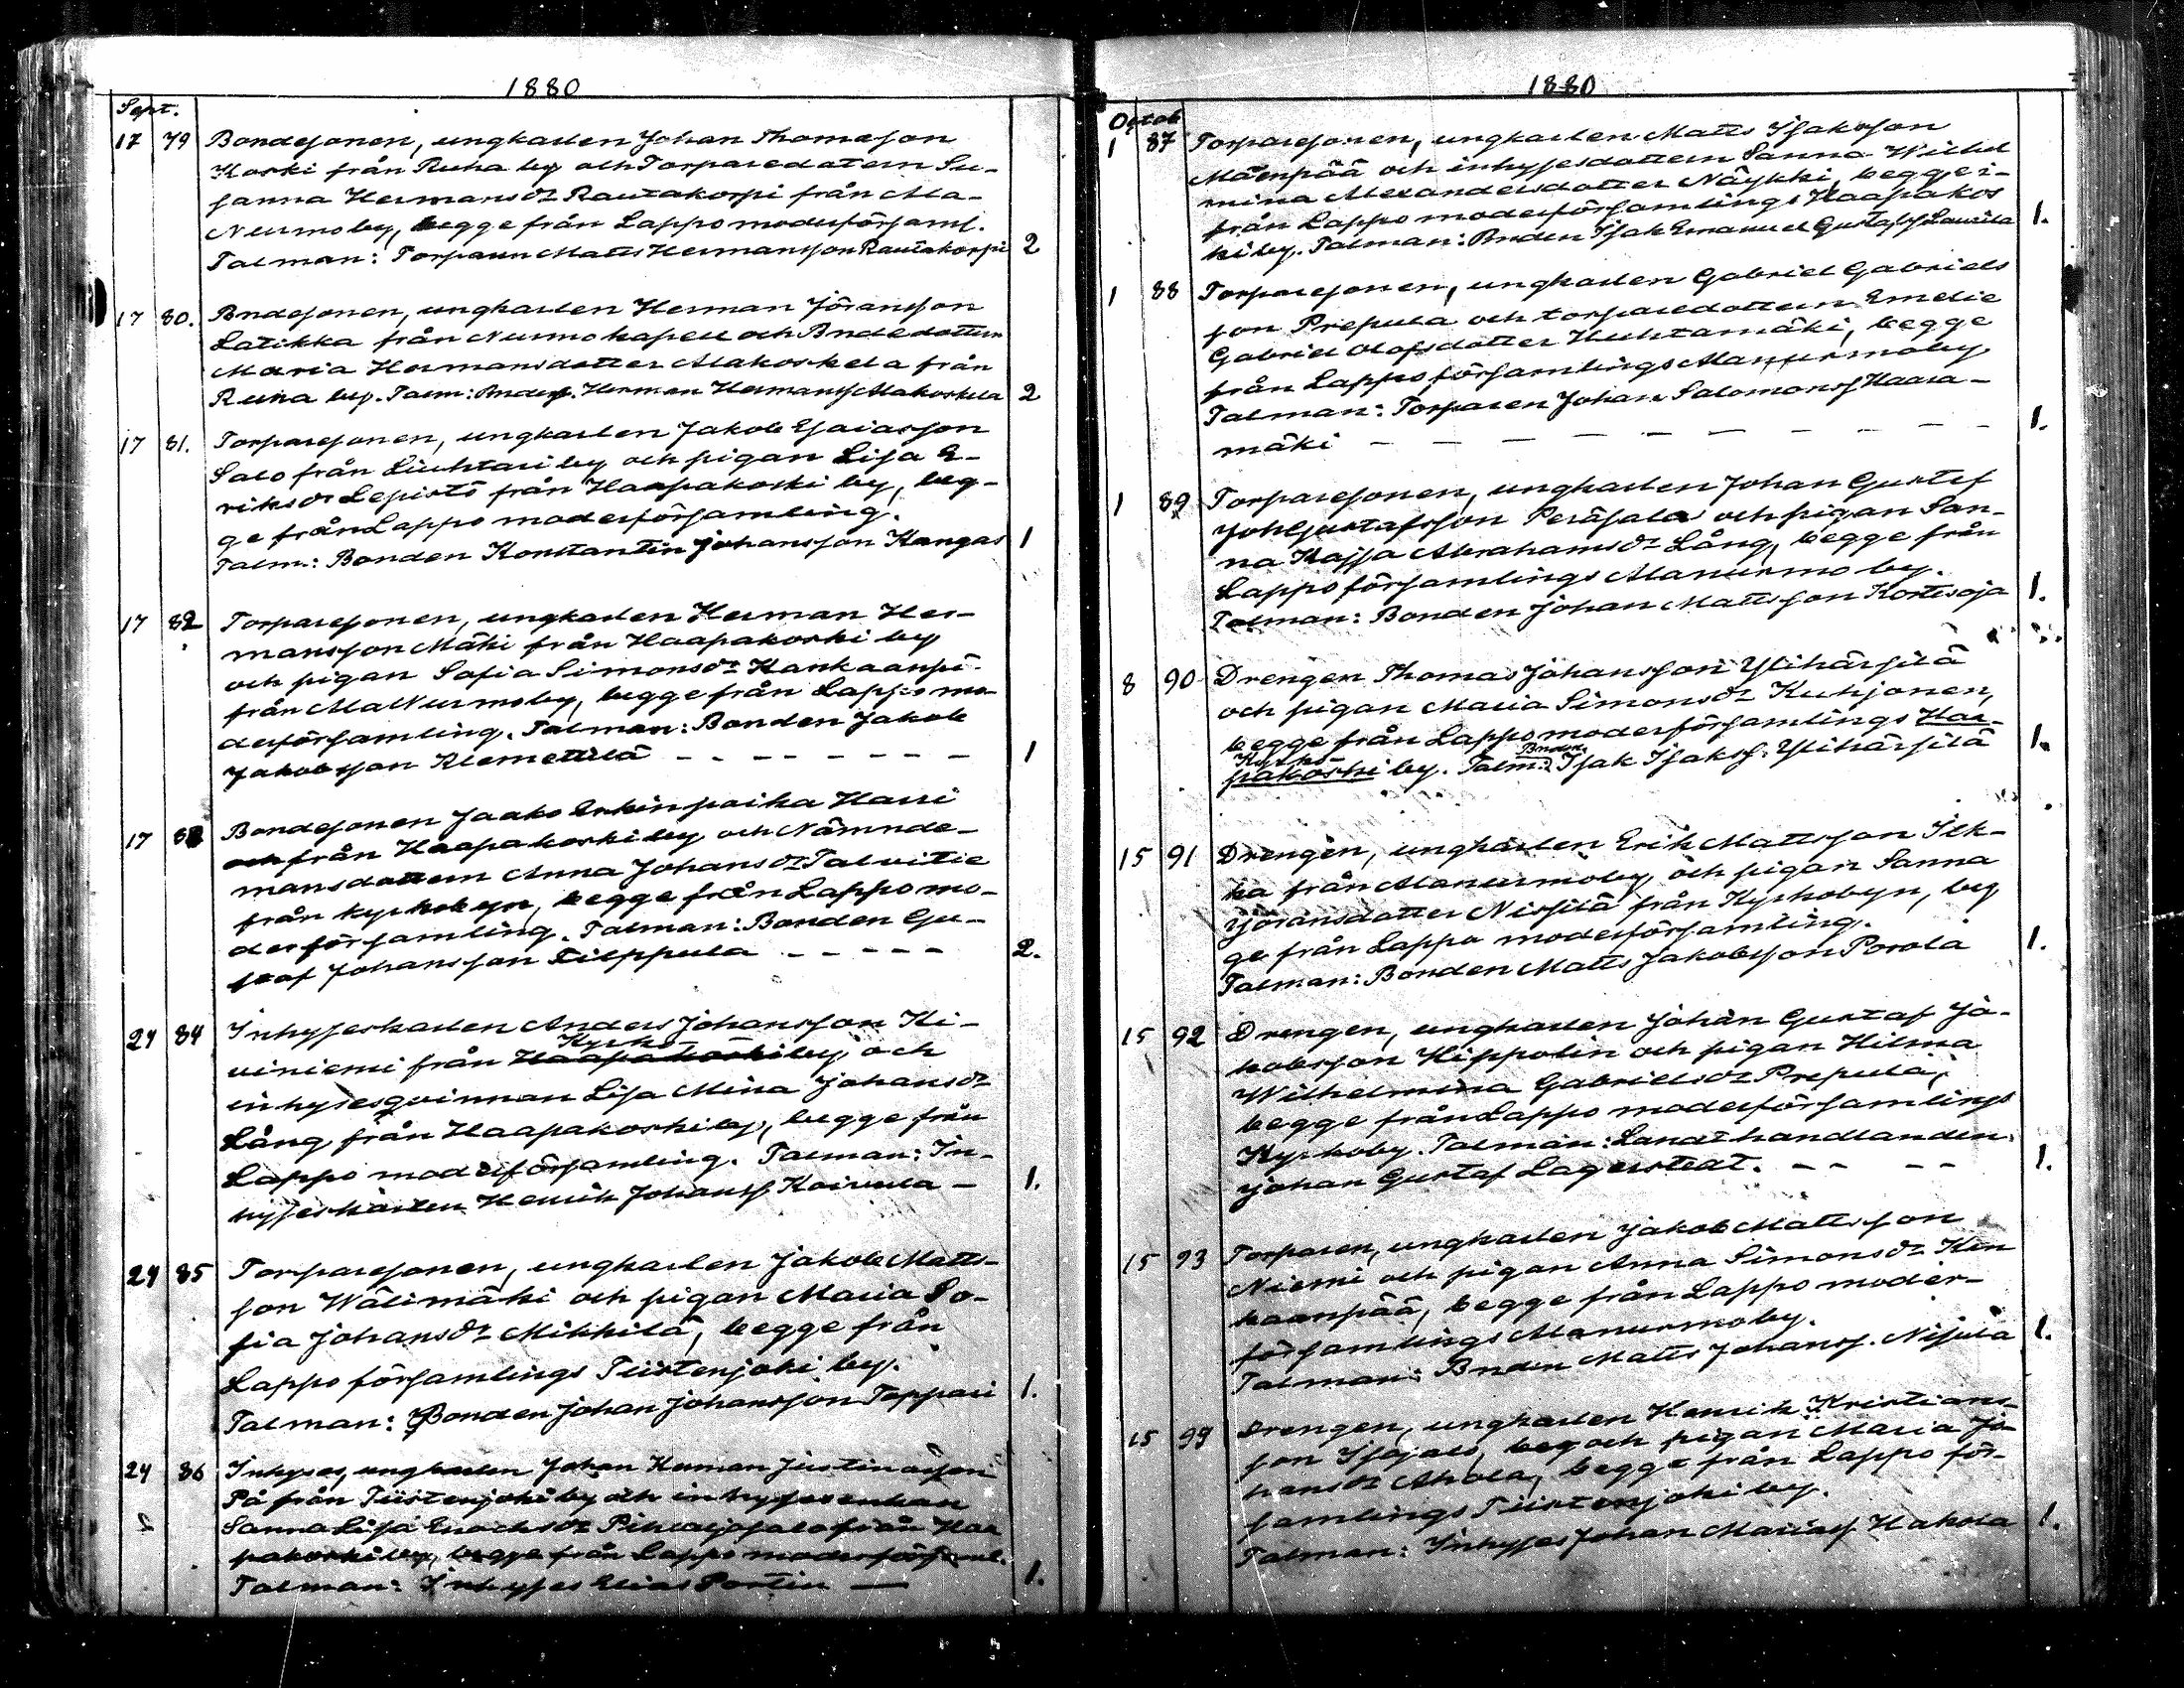 1880
Sept.
17 79 Bondesonen, ungkarlen Johan Thomasson
Koski från Ruha by och Torparedotern Su-
sanna Hermansdr Rautakorpi från Ala-
Nurmo by, begge från Lappo moderförsaml.
Talman: Torparen Matts Hermansson Rautakorpi 2
17 80. Bndesonen, ungkarlen Herman Jöransson
Latikka från Nurmo kapell och Bndedottern
Maria Hermansdotter Alakoskela från
Ruha by. Talm: Bndes. Herman Hermanss Alakoskela 2
17 81. Torparesonen, ungkarlen Jakob Esaiasson
Salo från Liuhtari by och pigan Lisa E-
riksdr Lepistö från Haapakoski by, beg-
ge från Lappo moderförsamling.
Talm.: Bonden Konstantin Johansson Kangas 1
17 82 Torparesonen, ungkarlen Herman Her-
mansson Mäki från Haapakoski by
och pigan Sofia Simonsdr Kankaanpä
från AlaNurmoby, begge från Lappo mo-
derförsamling. Talman: Bonden Jakob
Jakobsson Klemettilä - - - - - - - 1
17 83 Bondesonen Jaako Erkinpoika Harri
och från Haapakoski by och Nämnde-
mansdottern Anna Johansdr Talvitie
från kyrkobyn, begge från Lappo mo-
derförsamling. Talman: Bonden Gu-
staf Johansson Filppula - - - - - 2.
24 84 Inhyseskarlen Anders Johansson Ki-
Kyrko-
viniemi från Haapakoski by och
inhysesqvinnan Lisa Mina Johansdr
Lång från Haapakoski by, begge från
Lappo moderförsamling. Talman: In-
hyseskarlen Henrik Johanss Koivula - 1.
24 85 Torparesonen, ungkarlen Jakob Matts-
son Wälimäki och pigan Maria So-
fia Johansdr Mikkilä, begge från
Lappo församlings Tiistenjoki by.
Talman: Bonden Johan Johansson Teppari 1.
24 86 Inhyses, ungkarlen Johan Herman
På från Tiistenjoki by och inhysesenkan
Sanna Lisa Enochsdr från Haa
pakoski by, begge från Lappo moderförsaml.
Talman: Inhyses Elias Portin — 1.
1880
Octob
1 87 Torparesonen, ungkarlen Matts Isaksson
Mäenpää och inhysesdottern Sanna Wilhel
mina Alexandersdotter Näykki, begge i-
från Lappo moderförsamlings Haapakos
ki by. Talman: Bnden Isak Emanuel Gustafss Laurila 1.
1 88 Torparesonen, ungkarlen Gabriel Gabriels
son Prepula och torparedottern Emelie
Gabriel Olofsdotter Huhtamäki, begge
från Lappo församlings Alanurmoby
Talman: Torparen Johan Salomonss Haara-
mäki - - - - - - - - - 1.
1 89 Torparesonen, ungkarlen Johan Gustaf
Johlgustafsson Peräsalo och pigan San-
na Kajsa Abrahamsdr Lång, begge från
Lappo församlings Alanurmo by.
Talman: Bonden Johan Mattsson Kortesoja 1.
8 90 Drengen Thomas Johansson Ylihärsilä
och pigan Maria Simonsdr Kuhjonen,
begge från Lappo moderförsamlings Haa-
Kyrko- Bnden
pakoski by. Talm: Isak Isakss: Ylihärsilä 1.
15 91 Drengen, ungkarlen Erik Mattsson Ilk-
ka från Alanurmoby och pigan Sanna
Jöransdotter Nissilä från Kyrkobyn, beg
ge från Lappo moderförsamling.
Talman: Bonden Matts Jakobsson Porola 1.
15 92 Drengen, ungkarlen Johan Gustaf Ja-
kobsson Hippolin och pigan Hilma
Wilhelmina Gabrielsdr Prepula,
begge från Lappo moderförsamlings
Kyrkoby. Talman: Landthandlanden
Johan Gustaf Lagerstedt. - - - - 1.
15 93 Torparen, ungkarlen Jakob Mattsson
Niemi och pigan Anna Simonsdr Kan
kaanpää, begge från Lappo moder-
församlings Alanurmoby.
Talman: Bnden Matts Johanss. Nisula 1.
15 94 Drengen, ungkarlen Henrik Kristians-
son Isojalo, beg och pigan Maria Jo
hansdr Ahola, begge från Lappo för-
samlings Tiistenjoki by.
Talman: Inhyses Johan Mariass Hakola 1.